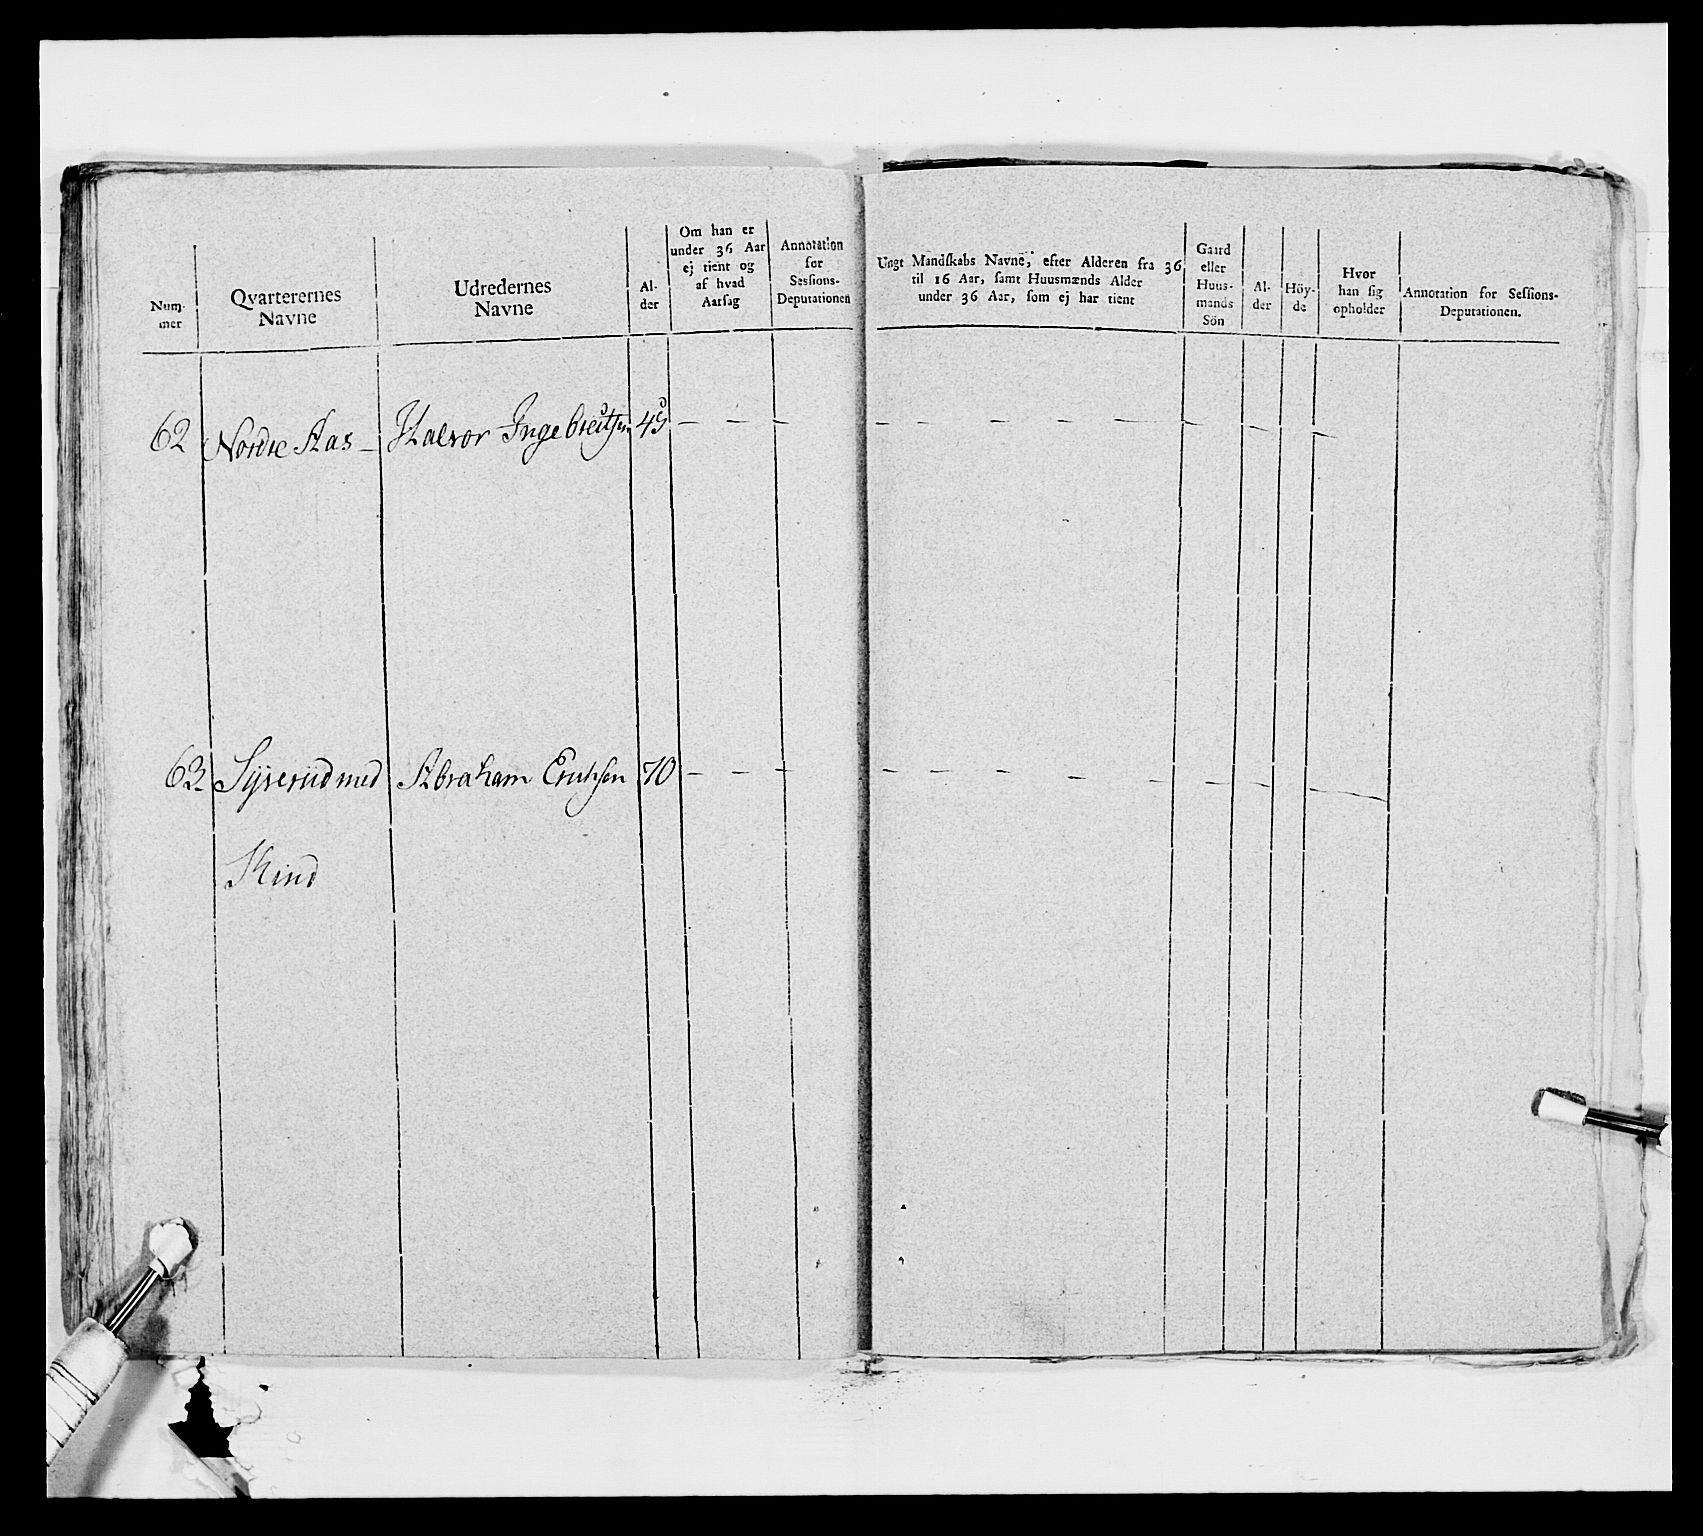 Num-
mer
Qvarterernes
Navne
Udredernes
Navne
Al-
der
Om han er
under 36 Aar
ej tient og
af hvad
Aarsag
Annotation
for
Sessions-
Deputationen
Ungt Mandskabs Navne, efter Alderen fra 36
til 16 Aar, samt Huusmænds Alder
under 36 Aar, som ej har tient
Gaard
eller
Huus-
mands
Sön
Al-
der
Höy-
de
Hvor
han sig
opholder
Annotation for Sessions-
Deputationen.
62 Nordre Aas – Halvor Ingebretsen 45 – – – – – – – – – –
63 med Abraham Erichsen 70 – – – – – – – – – –